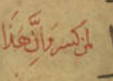 لمن كسر وان هذا